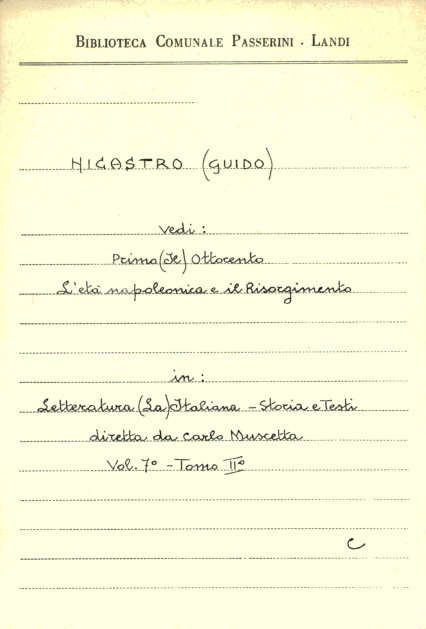 BIBLIOTECA COMUNALE PASSERINI - LANDI
NIGASTRO (GUIDO)
vedi:
Primo (Il) Ottocento
L'età napoleonica e il Risorgimento
in:
Letteratura (La) Italiana - Storia e Testi
diretta da Carlo Muscetta
Vol. 7° - Tomo II°
C